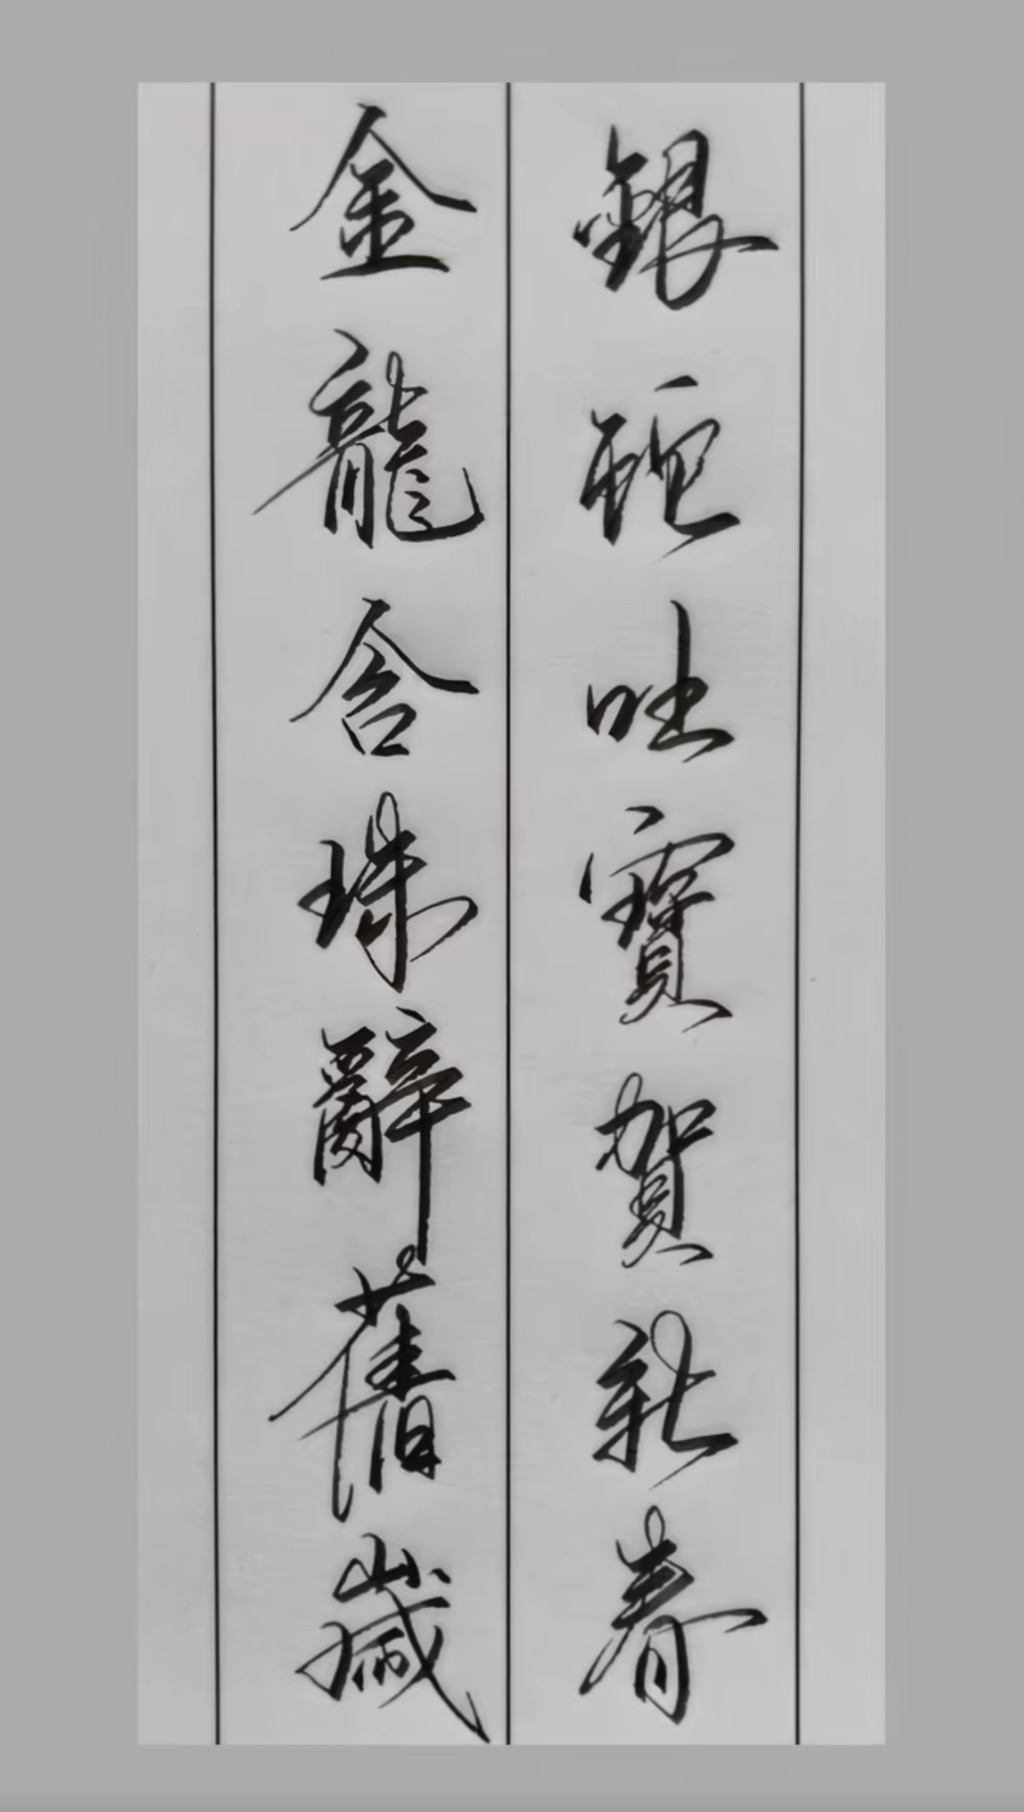 銀蛇吐寳賀新春
金龍含珠辭舊歲